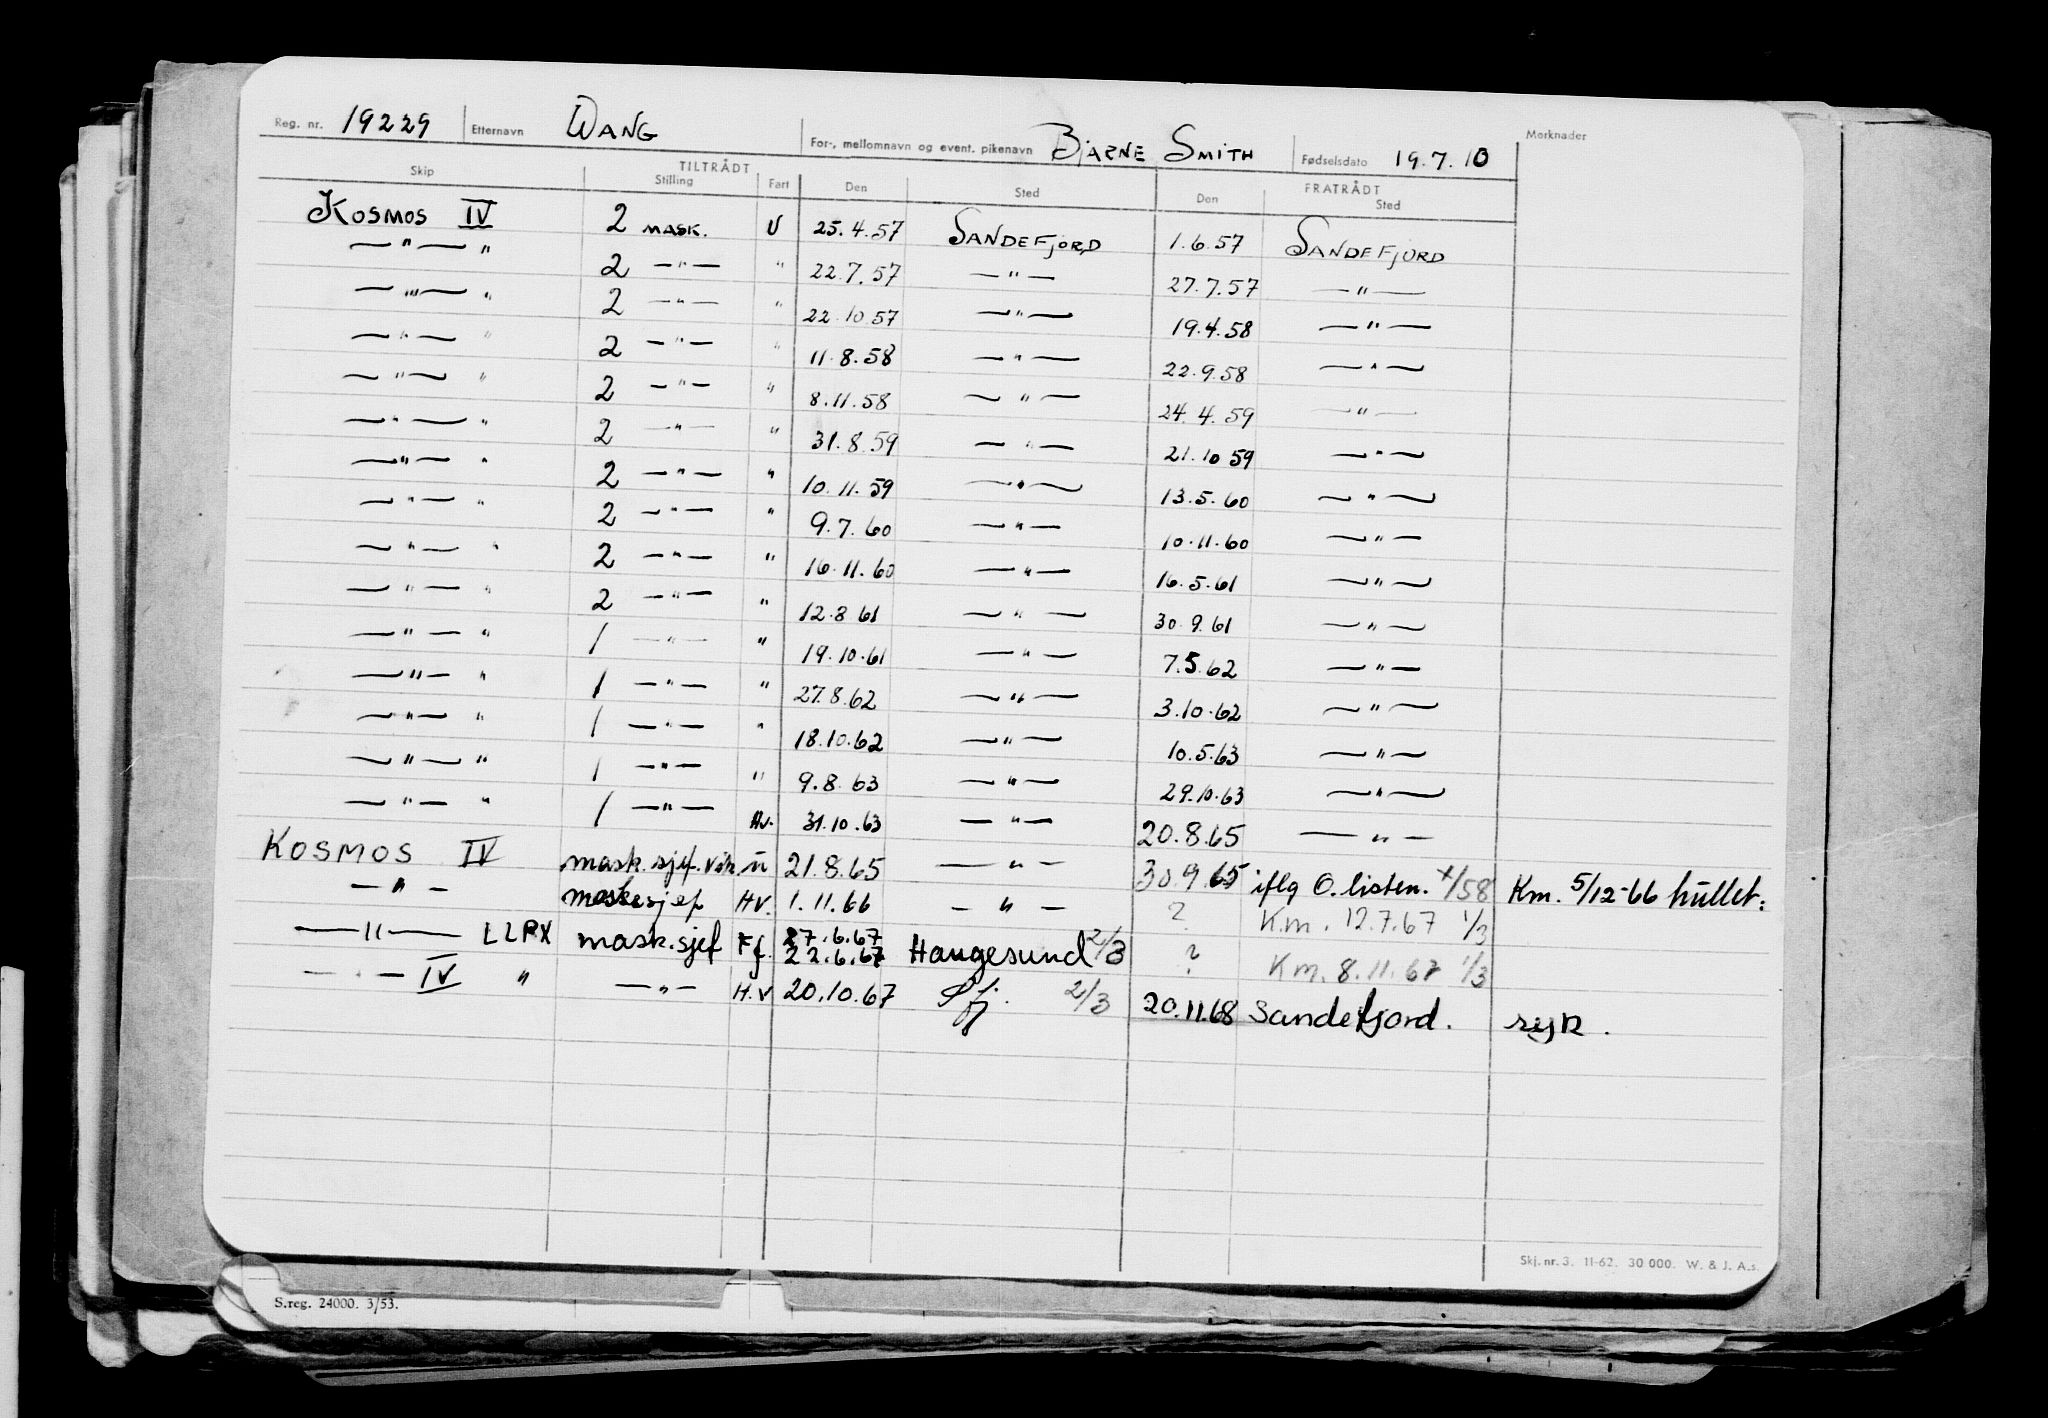 Reg. nr. 19229 Etternavn WANG For-, mellomnavn og event. pikenavn BJARNE SMITH Fødselsdato 19.7.10 Merknader
TILTRÅDT FRATRÅDT
Skip Stilling Fart Den Sted Den Sted
KOSMOS IV 2 MASK. U 25.4.57 SANDEFJORD 1.6.57 SANDEFJORD
—"— " 2 —"— " 22.7.57 —"— 27.7.57 —"—
—"— " 2 —"— " 22.10.57 —"— 19.4.58 —"—
—"— " 2 —"— " 11.8.58 —"— 22.9.58 —"—
—"— " 2 —"— " 8.11.58 —"— 24.4.59 —"—
—"— " 2 —"— " 31.8.59 —"— 21.10.59 —"—
—"— " 2 —"— " 10.11.59 —"— 13.5.60 —"—
—"— " 2 —"— " 9.7.60 —"— 10.11.60 —"—
—"— " 2 —"— " 16.11.60 —"— 16.5.61 —"—
—"— " 2 —"— " 12.8.61 —"— 30.9.61 —"—
—"— " 1 —"— " 19.10.61 —"— 7.5.62 —"—
—"— " 1 —"— " 27.8.62 —"— 3.10.62 —"—
—"— " 1 —"— " 18.10.62 —"— 10.5.63 —"—
—"— " 1 —"— " 9.8.63 —"— 29.10.63 —"—
—"— " 1 —"— Hv. 31.10.63 —"— 20.8.65 —"—
KOSMOS IV mask.sjef.vik. u 21.8.65 —"— 30.9.65 iflg O.listen. x/58 Km. 5/12-66 hullet:
—"— maskesjef HV. 1.11.66 —"— ? Km. 12.7.67 1/3
—"— LLPX mask.sjef Ff. 27.6.67 22.6.67 Haugesund 2/3 ? Km. 8.11.67 1/3
—"— IV " —"— H.V 20.10.67 Sfj. 2/3 20.11.68 Sandefjord. syk.
Skj. nr. 3. 11-62. 30 000. W. & J. A.s.
S.reg. 24000. 3/53.